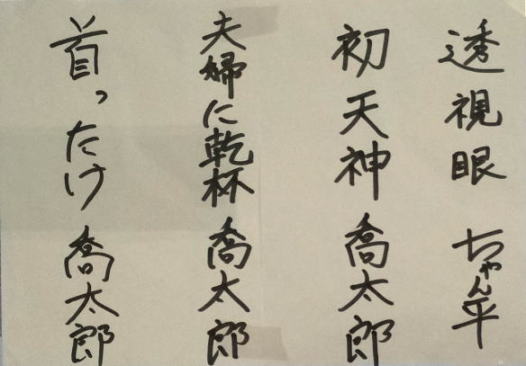 透視眼 ちゃん平
初天神 喬太郎
夫婦に乾杯 喬太郎
首ったけ 喬太郎